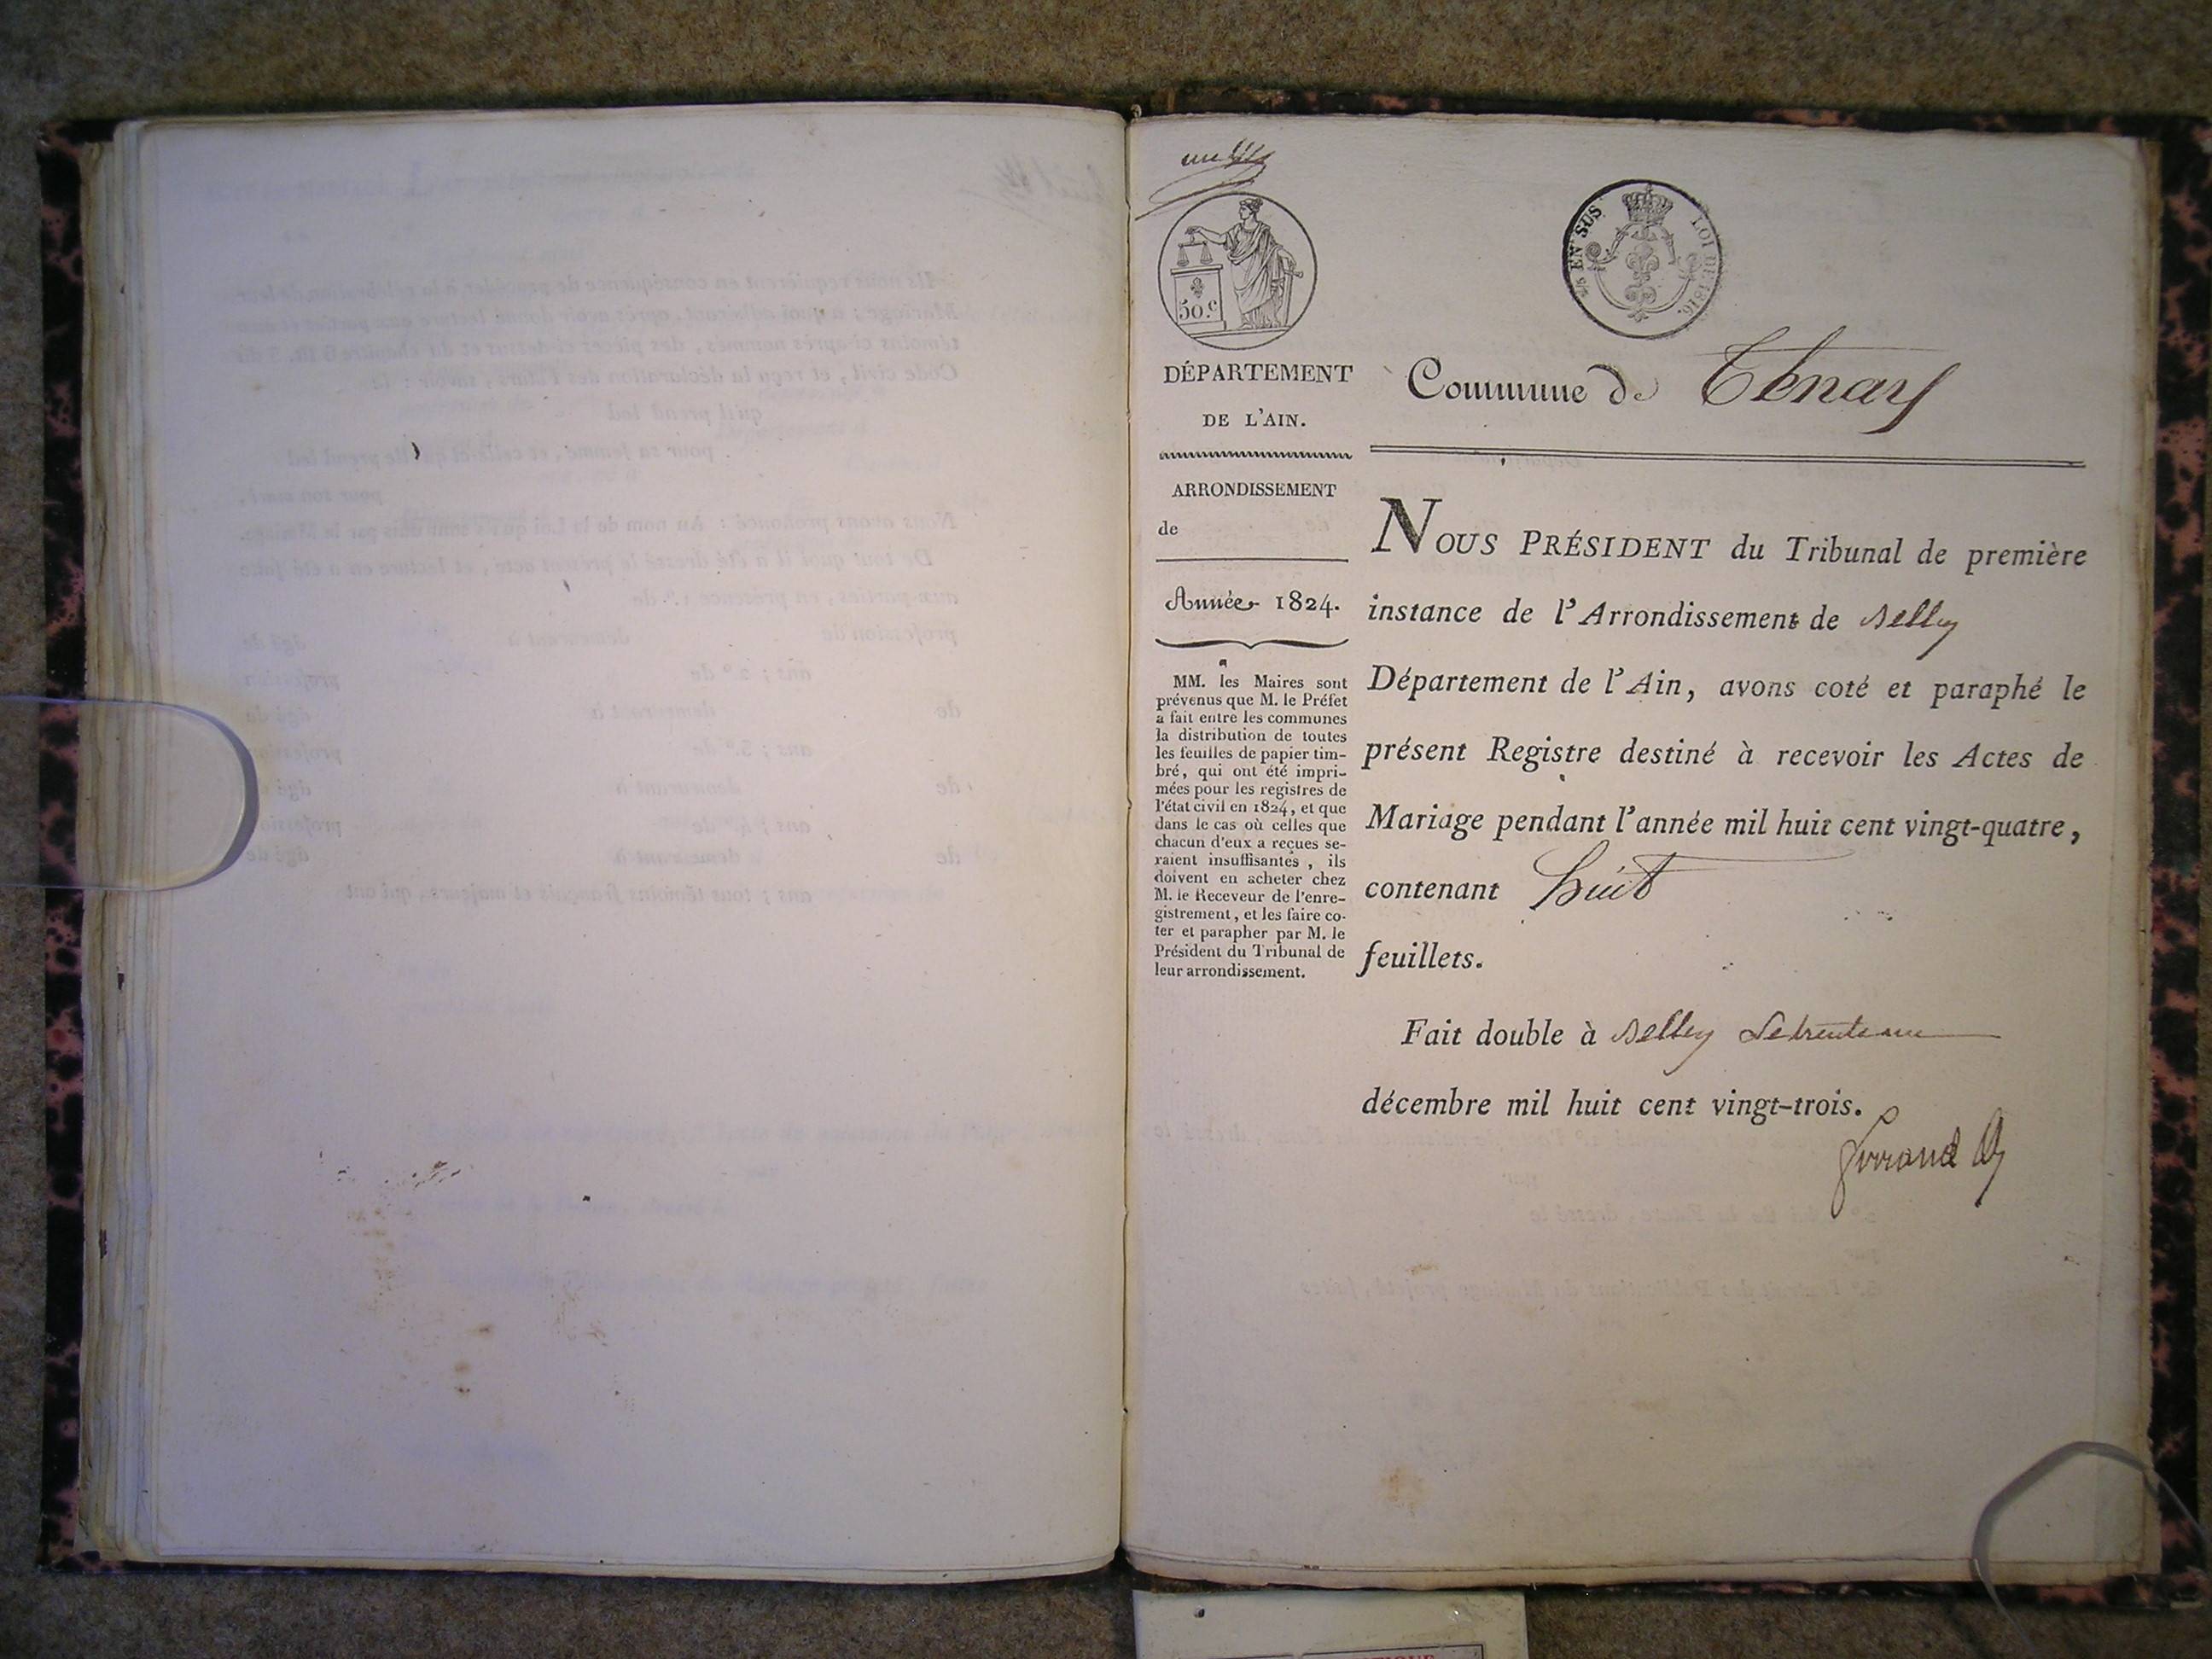 50.c
EN SUS
LOI DE 1816.
DÉPARTEMENT
DE L'AIN.
ARRONDISSEMENT
de
Année 1824.
MM. les Maires sont
prévenus que M. le Préfet
a fait entre les communes
la distribution de toutes
les feuilles de papier tim-
bré, qui ont été impri-
mées pour les registres de
l'état civil en 1824, et que
dans le cas où celles que
chacun d'eux a reçues se-
raient insuffisantes, ils
doivent en acheter chez
M. le Receveur de l'enre-
gistrement, et les faire co-
ter et parapher par M. le
Président du Tribunal de
leur arrondissement.
Commune de Tenay
NOUS PRÉSIDENT du Tribunal de première
instance de l'Arrondissement de Belley
Département de l'Ain, avons coté et paraphé le
présent Registre destiné à recevoir les Actes de
Mariage pendant l'année mil huit cent vingt-quatre,
contenant huit
feuillets.
Fait double à Belley le trente un
décembre mil huit cent vingt-trois.